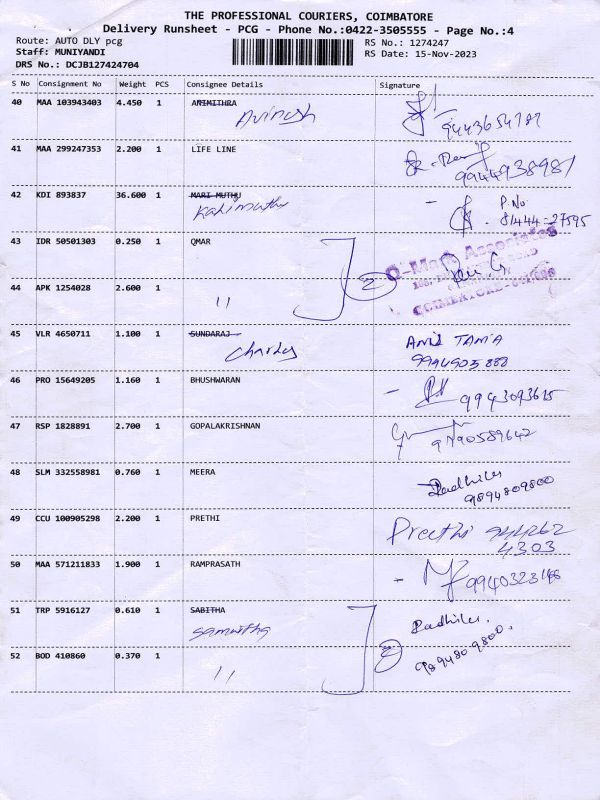 THE PROFESSIONAL COURIERS, COIMBATORE
Delivery Runsheet - PCG - Phone No.:0422-3505555 - Page No.:4
Route: AUTO DLY pcg
RS No.: 1274247
Staff: MUNIYANDI
RS Date: 15-Nov-2023
DRS No.: DCJB127424704
S No Consignment No Weight PCS Consignee Details Signature
40 MAA 103943403 4.450 1 ANIMITHRA
Avinash
9443654787
41 MAA 299247353 2.200 1 LIFE LINE
9944938981
42 KDI 893837 36.600 1 MARI MUTHU
Kalimuthu
P.No
81444-27595
43 IDR 50501303 0.250 1 QMAR
Q-Mar Associates
COIMBATORE
44 APK 1254028 2.600 1
"
2
45 VLR 4650711 1.100 1 SUNDARAJ
Charles
9994905888
46 PRO 15649205 1.160 1 BHUSHWARAN
9943093615
47 RSP 1828891 2.700 1 GOPALAKRISHNAN
9790589642
48 SLM 332558981 0.760 1 MEERA
Radhika
9894809800
49 CCU 100905298 2.200 1 PRETHI
Preethi 944262
4303
50 MAA 571211833 1.900 1 RAMPRASATH
9940323168
51 TRP 5916127 0.610 1 SABITHA
Samnitha
Radhika.
989480-9800.
52 BOD 410860 0.370 1
"
2